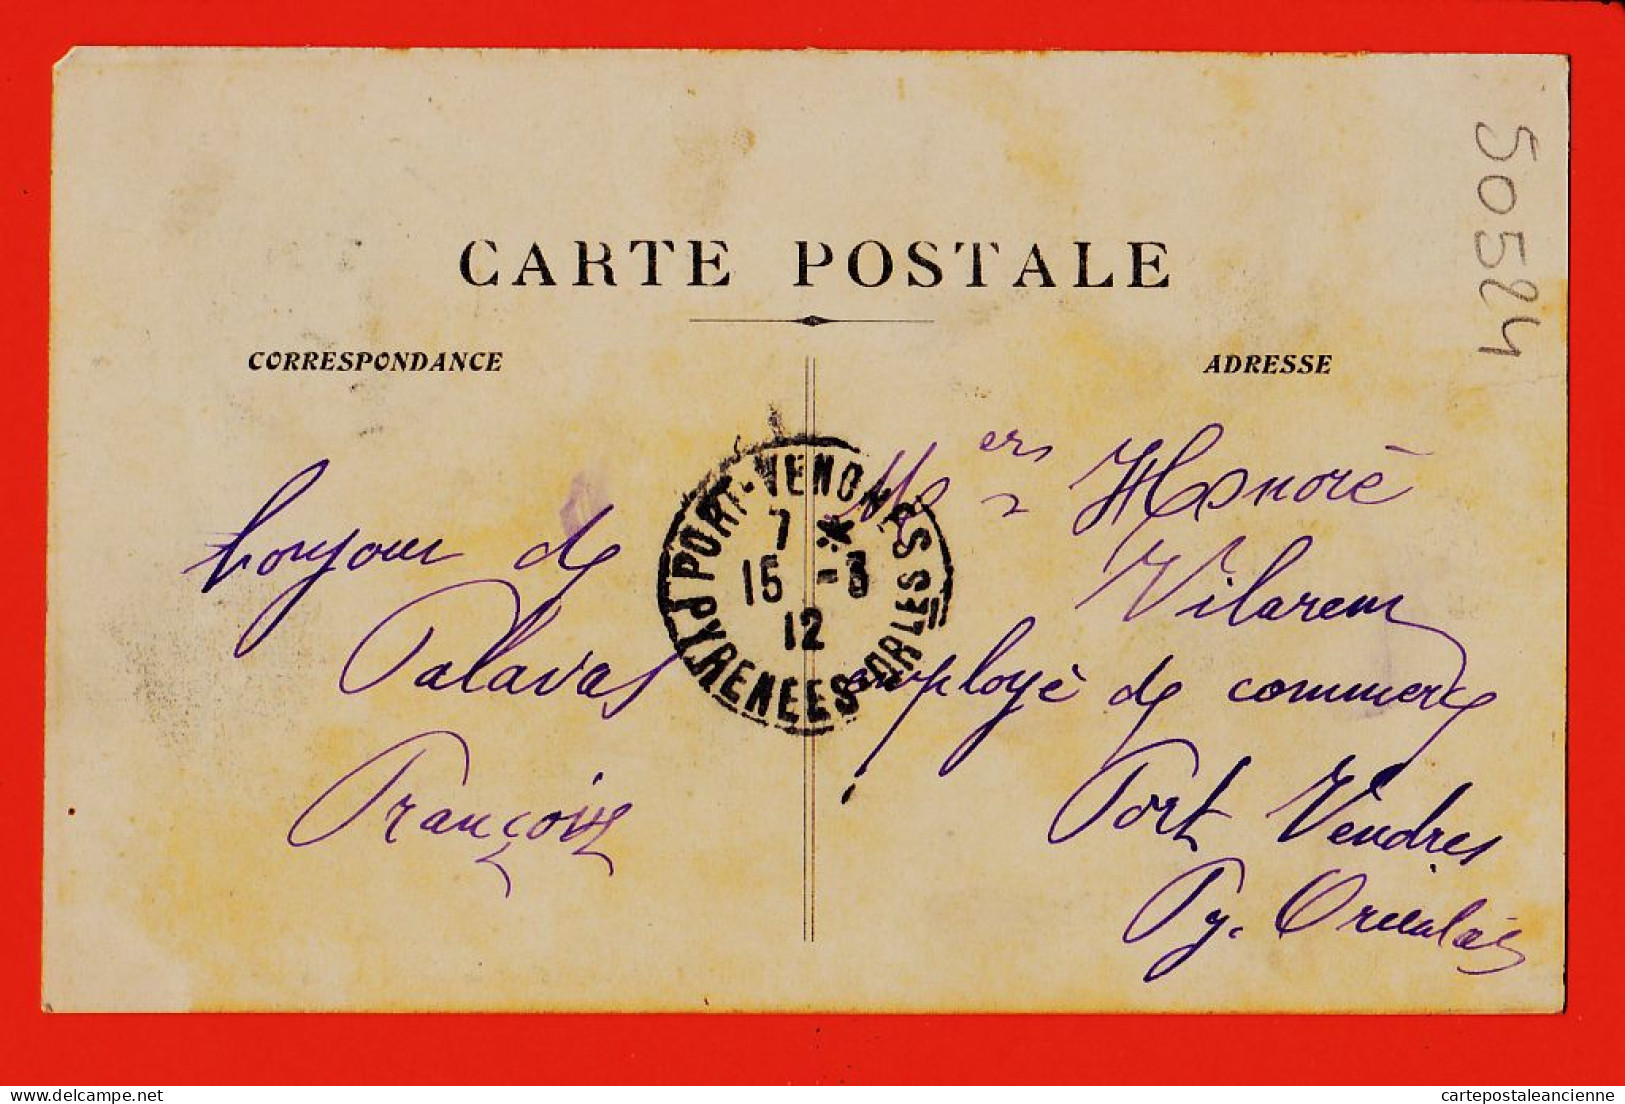 CARTE POSTALE
CORRESPONDANCE
ADRESSE
50524
bonjour de
Palavas
Françoise
PORT-VENDRES
7 *
15 -3
12
PYRENEES-ORLES
Honoré
Vilarem
employé de commerce
Port Vendres
Py. Orientales
delcampe.net
cartepostaleancienne